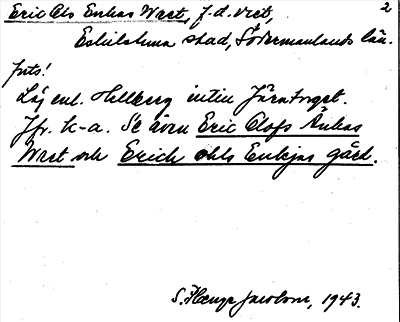 Eric Ols Enkas Wret, f.d. vret,
2
Eskilstuna stad, Södermanlands län.
Juts!
Låg enl. Hellberg intill Järntorget.
Jfr. k-a. Se även Eric Olofs Änkas
Wret och Erich ohls Enkjas gård.
S. Jacobson, 1943.